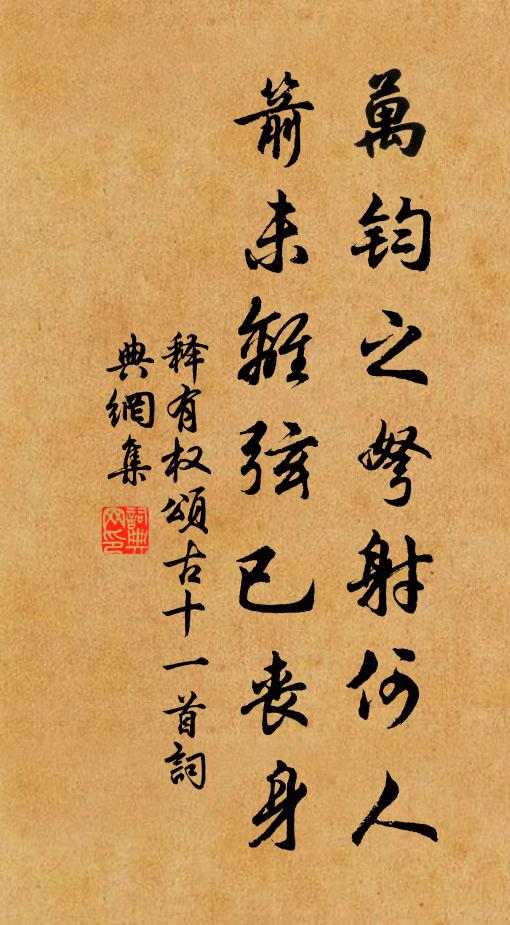 萬鈞之弩射何人
箭未離弦已喪身
释有权頌古十一首詞
典網集
詞典
网印